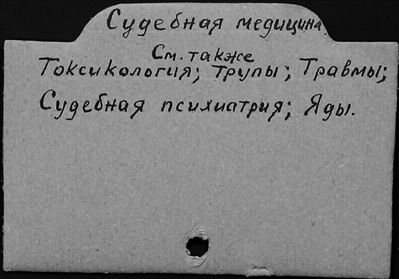 Судебная медицина.
См. также
Токсикология; Трупы; Травмы;
Судебная психиатрия; Яды.